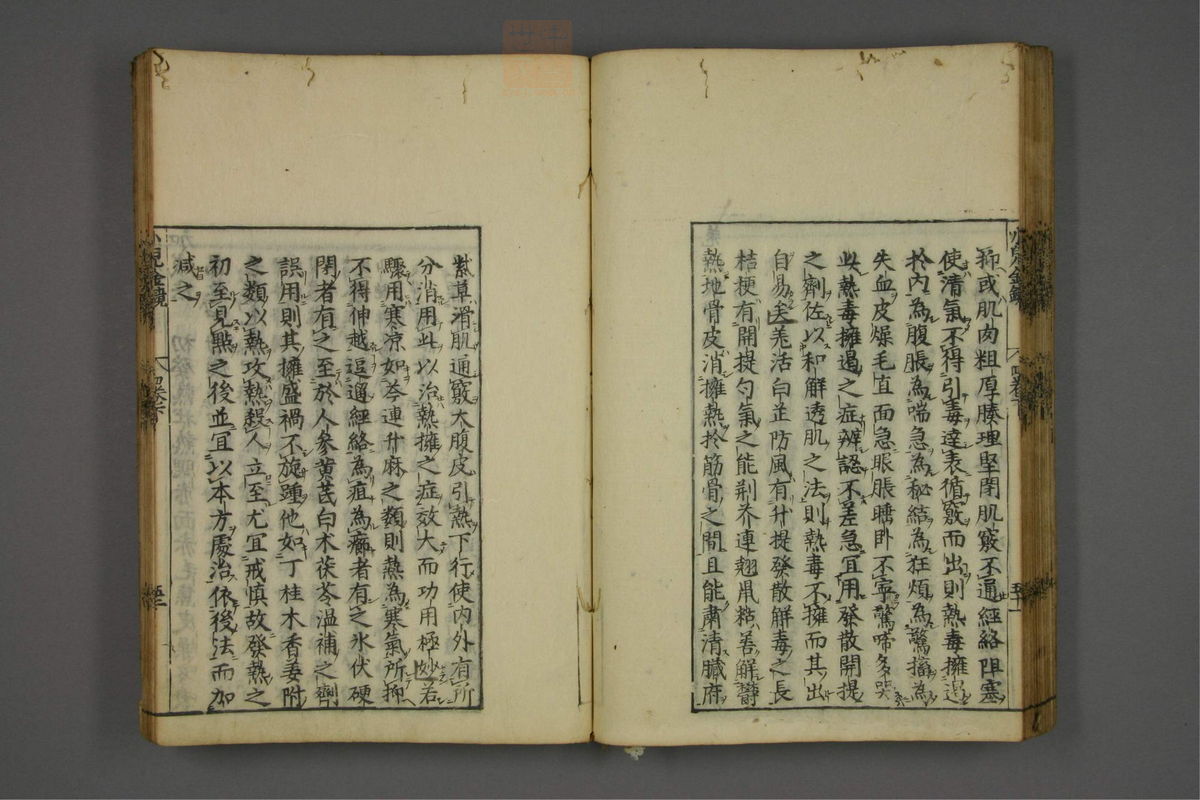 抑或肌肉粗厚腠理堅閉肌竅不通經絡阻塞
使清氣不得引毒達表循竅而出則熱毒擁遏
於内為腹脹為喘急為秘結為狂煩為驚搐為
失血皮燥毛直面急眼脹睡卧不寧驚啼多哭
此熱毒擁遏之症辨認不差急宜用發散開提
之劑佐以和解透肌之法則熱毒不擁而其出
自易矣羌活白芷防風有升提發散解毒之長
桔梗有開提匀氣之能荆芥連翹鼠粘善解欝
熱地骨皮消擁熱於筋骨之間且能肅清臟府
紫草滑肌通竅大腹皮引熱下行使内外有所
分消用此以治熱擁之症效大而功用極妙若
驟用寒凉如芩連升麻之類則熱為寒氣所抑
不得伸越逗遛經絡為疽為癤者有之氷伏硬
閉者有之至於人參黄芪白术茯苓温補之劑
誤用則其擁盛禍不旋踵他如丁桂木香姜附
之類以熱攻熱殺人立至尤宜戒慎故發熱之
初至見點之後並宜以本方處治依後法而加
減之
小兒金鏡